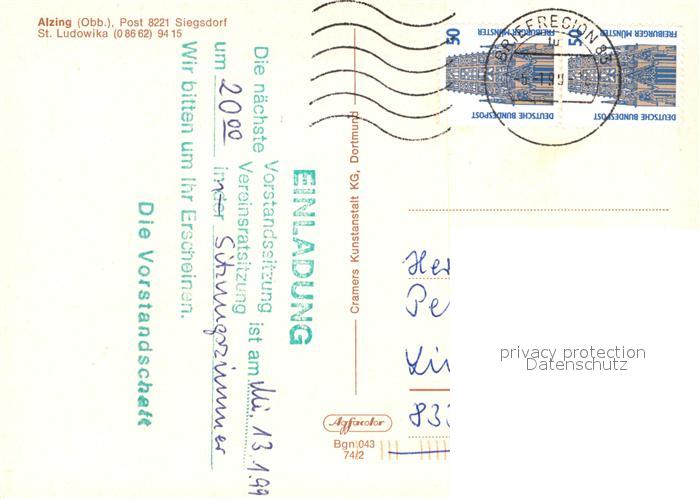 Alzing (Obb.), Post 8221 Siegsdorf
St. Ludowika (0 86 62) 94 15
EINLADUNG
Die nächste Vorstandssitzung
Vereinsratsitzung ist am Mi. 13.1.99
um 20 00 im Sitzungszimmer
Wir bitten um Ihr Erscheinen.
Die Vorstandschaft
Cramers Kunstanstalt KG, Dortmund
Agfacolor
Bgn 043
74/2
BRIEFREGION 83
50
FREIBURGER MÜNSTER
DEUTSCHE BUNDESPOST
50
FREIBURGER MÜNSTER
DEUTSCHE BUNDESPOST
privacy protection
Datenschutz